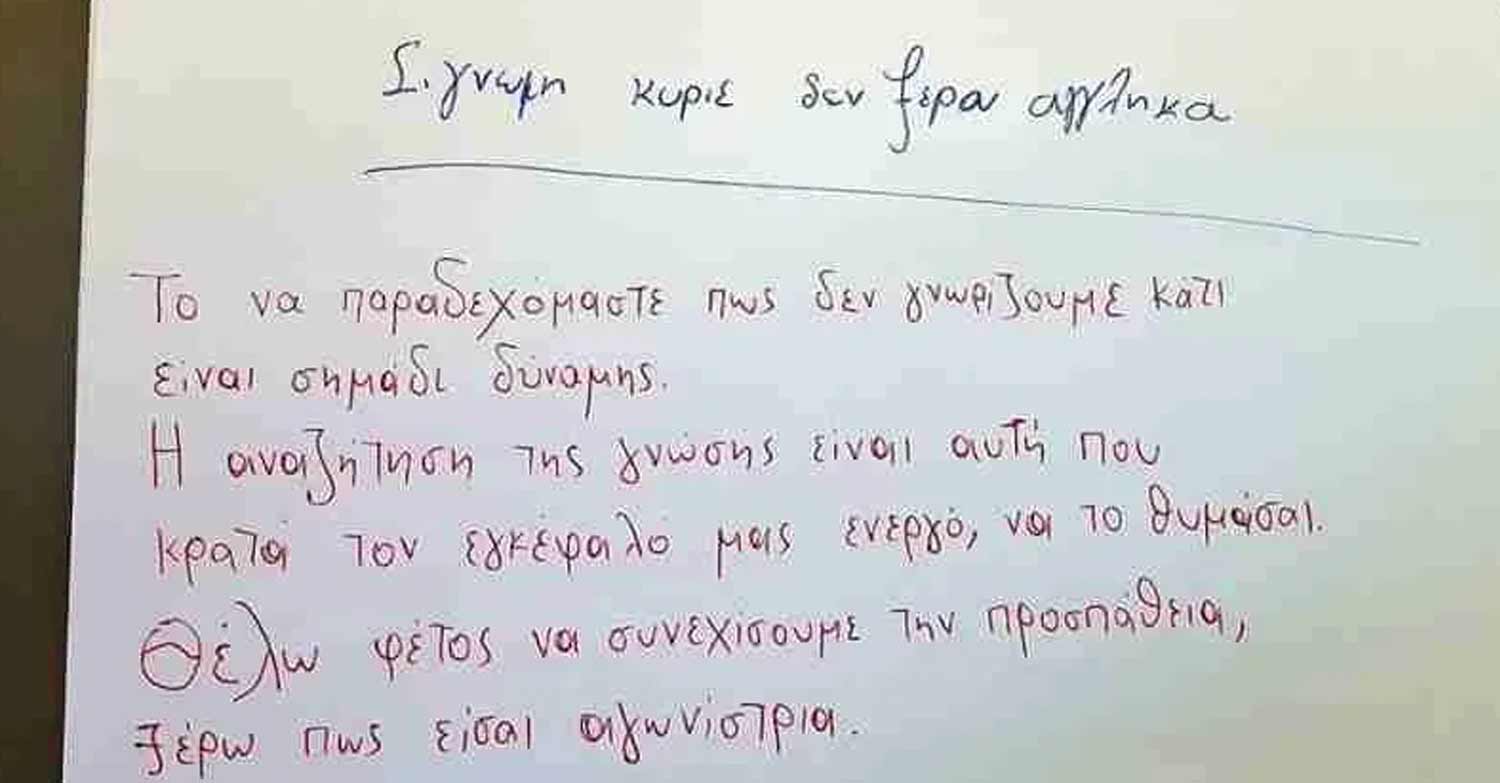 Σιγνωμη κυριε δεν ξερα αγγληκα
Το να παραδεχόμαστε πως δεν γνωρίζουμε κάτι
είναι σημάδι δύναμης.
Η αναζήτηση της γνώσης είναι αυτή που
κρατά τον εγκέφαλό μας ενεργό, να το θυμάσαι.
Θέλω φέτος να συνεχίσουμε την προσπάθεια,
ξέρω πως είσαι αγωνίστρια.